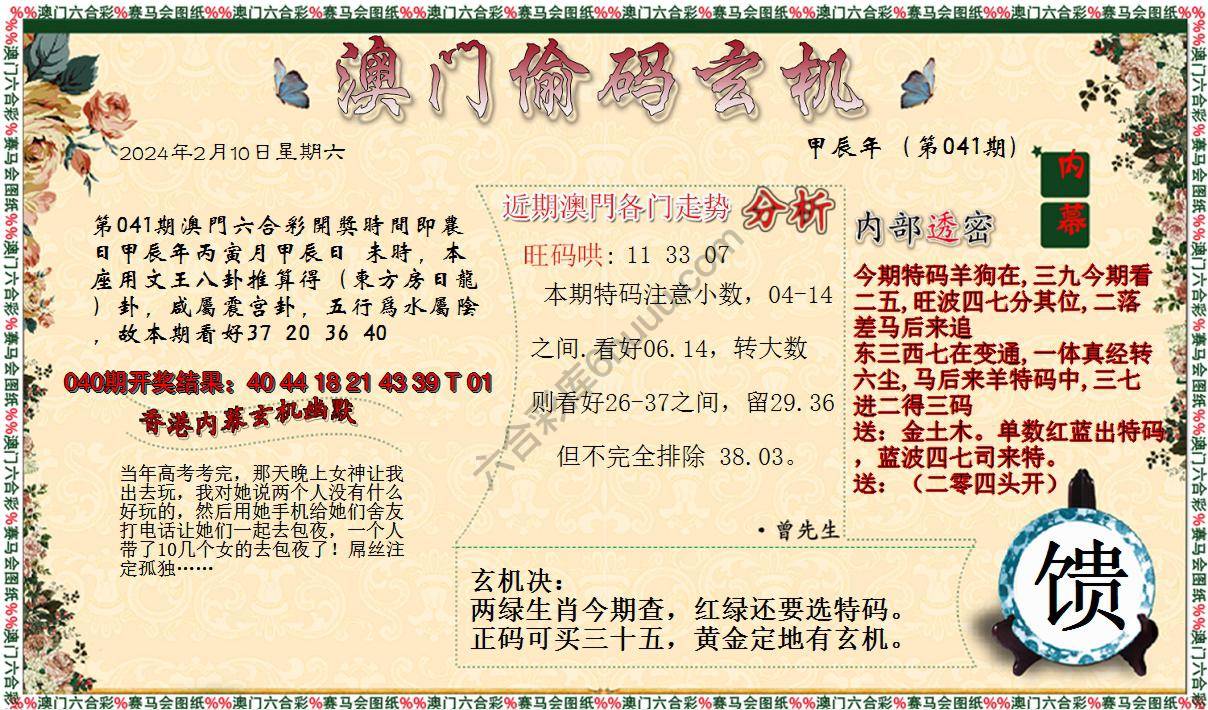 %%澳门六合彩%赛马会图纸%%澳门六合彩%赛马会图纸%%澳门六合彩%赛马会图纸%%澳门六合彩%赛马会图纸%%澳门六合彩%赛马会图纸%%澳门六合彩%赛马会图纸%%
澳门偷码玄机
2024年2月10日星期六
甲辰年（第041期）
内幕
第041期澳門六合彩開獎時間即農
日甲辰年丙寅月甲辰日 未時，本
座用文王八卦推算得（東方房日龍
）卦，咸屬震宫卦，五行爲水屬陰
，故本期看好37 20 36 40
040期开奖结果：40 44 18 21 43 39 T 01
香港内幕玄机幽默
当年高考考完，那天晚上女神让我
出去玩，我对她说两个人没有什么
好玩的，然后用她手机给她们舍友
打电话让她们一起去包夜，一个人
带了10几个女的去包夜了！屌丝注
定孤独……
近期澳門各门走势 分析
旺码哄: 11 33 07
本期特码注意小数，04-14
之间.看好06.14，转大数
则看好26-37之间，留29.36
但不完全排除 38.03。
·曾先生
内部透密
今期特码羊狗在,三九今期看
二五,旺波四七分其位,二落
差马后来追
东三西七在变通,一体真经转
六尘,马后来羊特码中,三七
进二得三码
送：金土木。单数红蓝出特码
，蓝波四七司来特。
送：（二零四头开）
玄机决：
两绿生肖今期查，红绿还要选特码。
正码可买三十五，黄金定地有玄机。
馈
%%澳门六合彩%赛马会图纸%%澳门六合彩%赛马会图纸%%澳门六合彩%赛马会图纸%%澳门六合彩%赛马会图纸%%澳门六合彩%赛马会图纸%%澳门六合彩%赛马会图纸%%